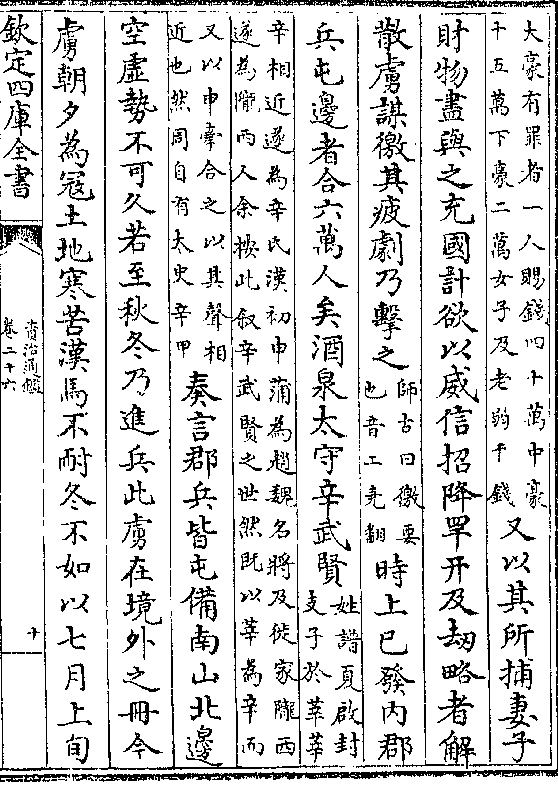 大豪有罪者一人賜錢四十萬中豪
十五萬下豪二萬女子及老弱千錢
又以其所捕妻子
財物盡與之充國計欲以威信招降罕开及劫略者解
散虜謀徼其疲劇乃擊之
師古曰徼要
也音工堯翻
時上已發內郡
兵屯邊者合六萬人矣酒泉太守辛武賢
姓譜夏啟封
支子於莘莘
辛相近遂為辛氏漢初申蒲為趙魏名將及徙家隴西
遂為隴西人余按此叙辛武賢之世然既以莘為辛而
又以申莘合之以其聲相
近也然周自有太史辛甲
奏言郡兵皆屯備南山北邊
空虛勢不可久若至秋冬乃進兵此虜在境外之冊今
虜朝夕為冦土地寒苦漢馬不耐冬不如以七月上旬
欽定四庫全書
資治通鑑
卷二十六
十